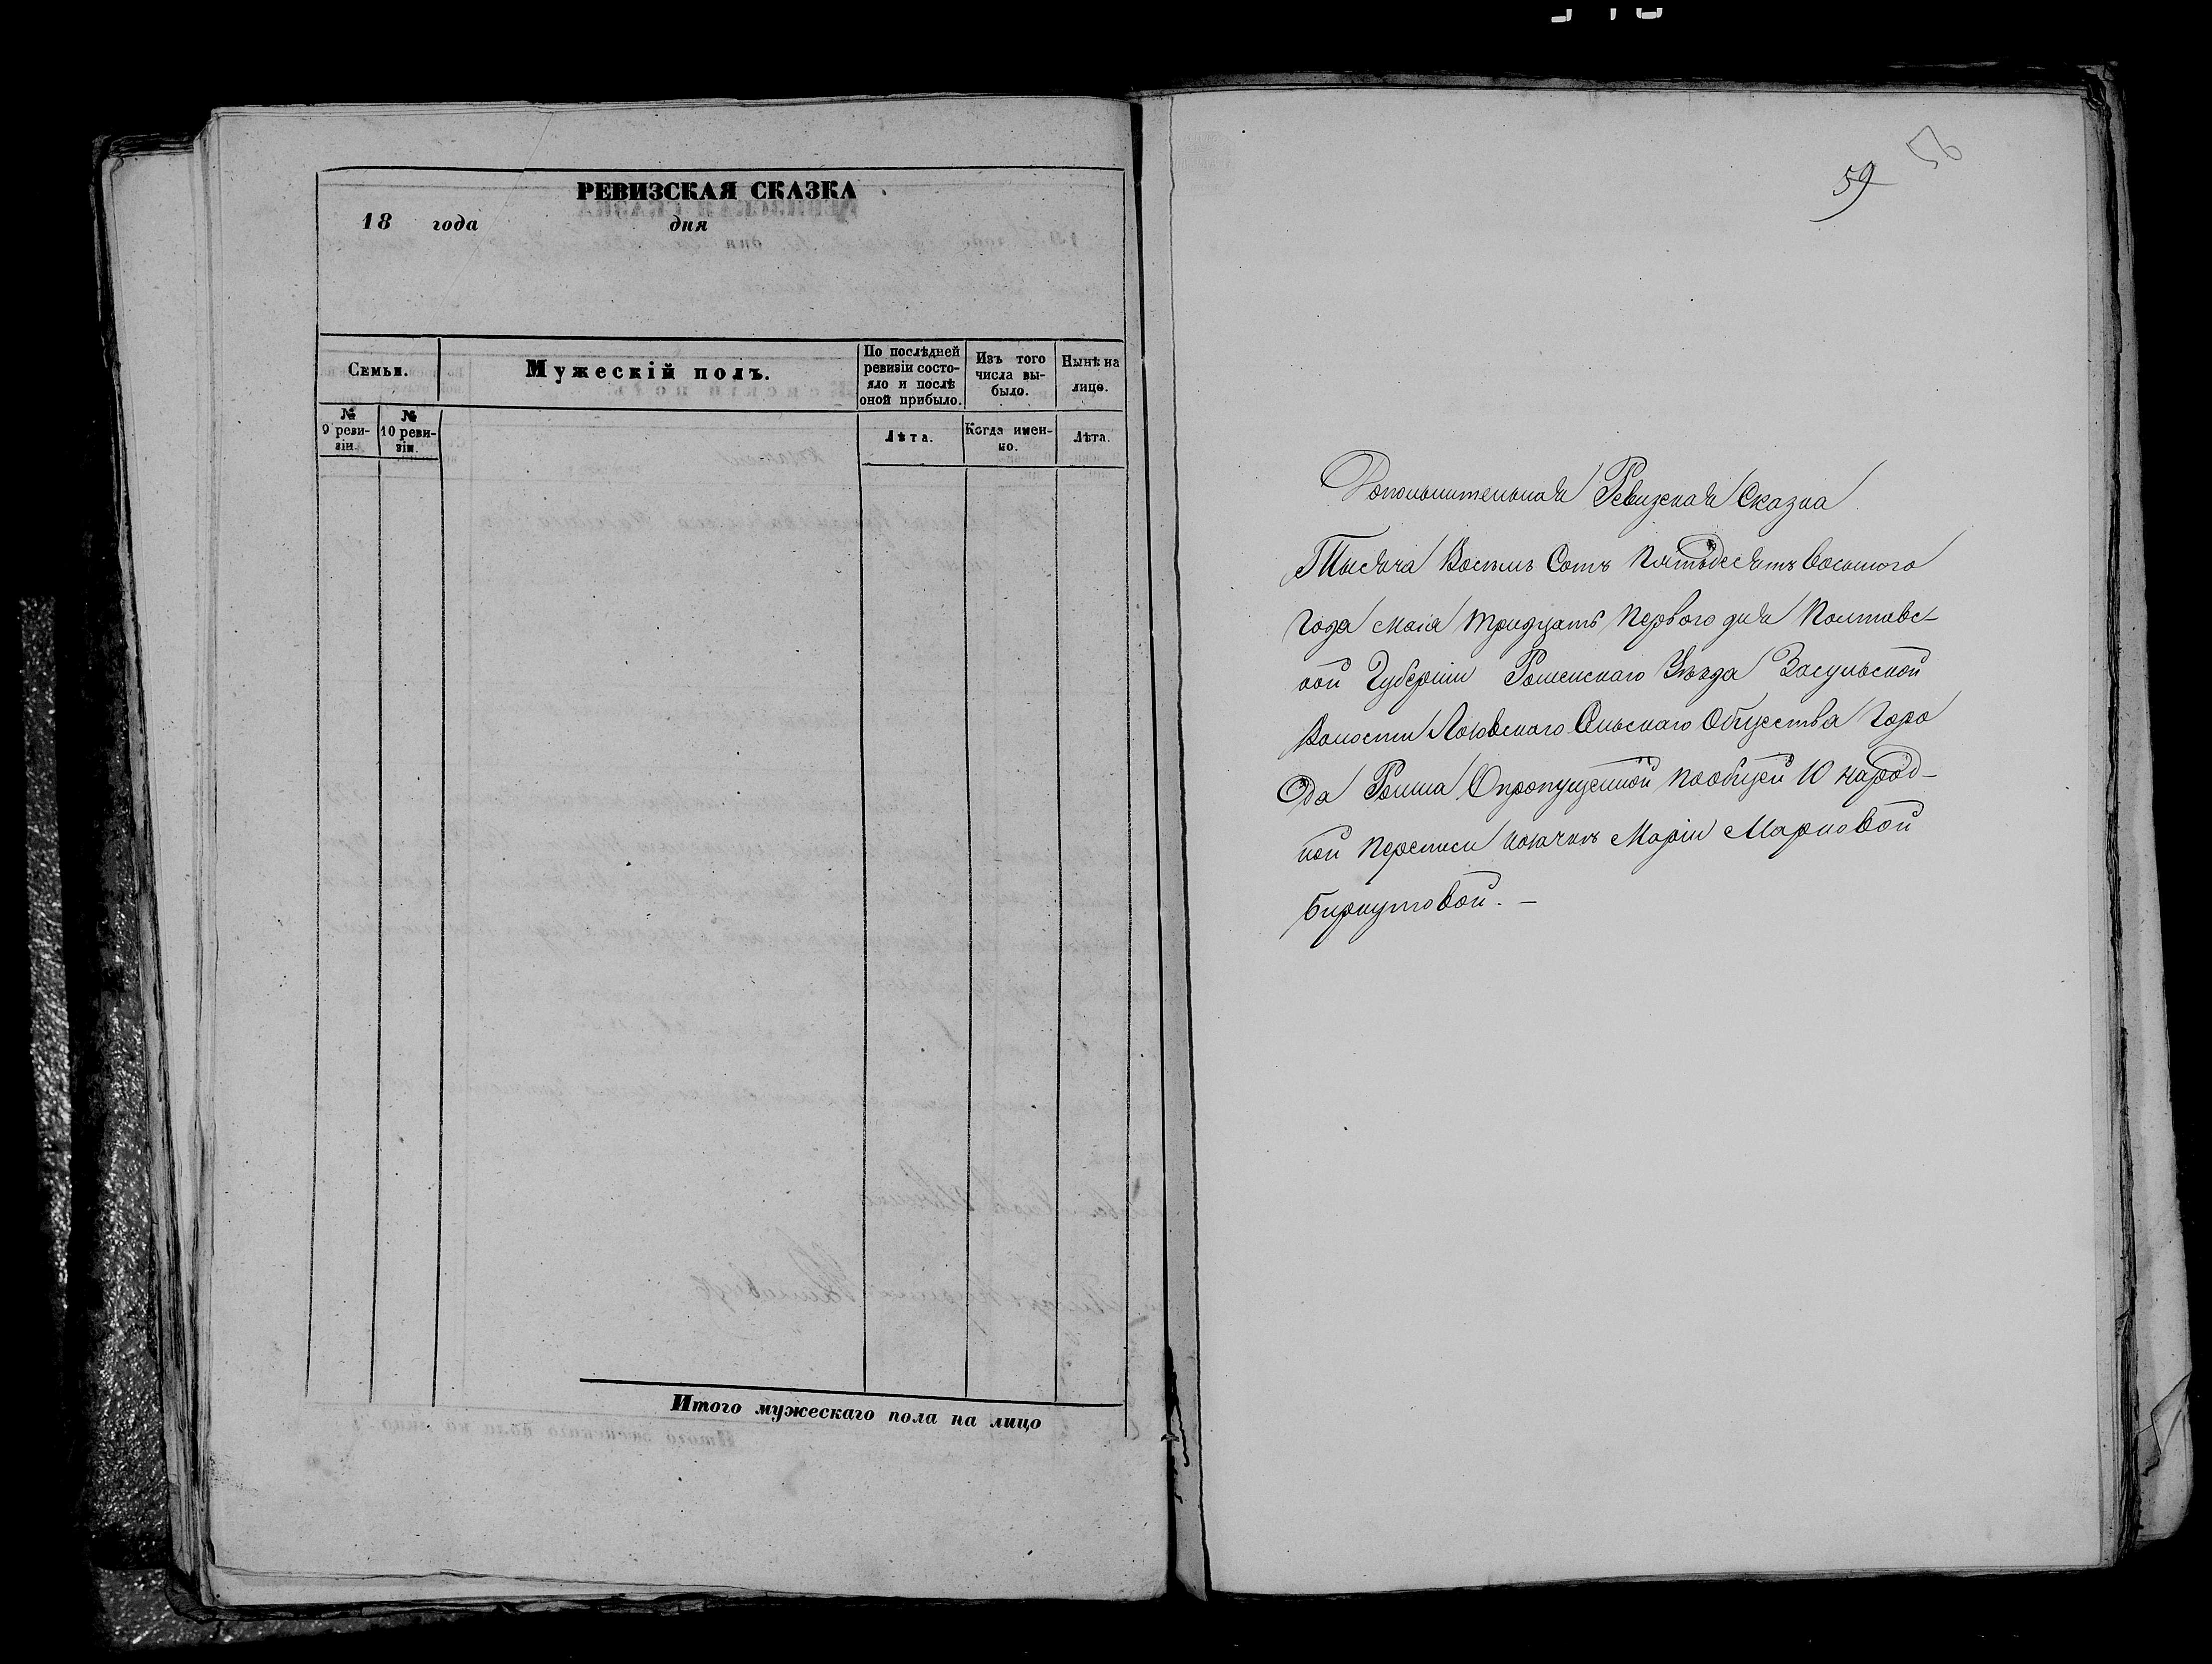 РЕВИЗСКАЯ СКАЗКА
18 года дня
Семьи.
Мужескій полъ.
По послѣдней
ревизіи состо-
яло и послѣ
оной прибыло.
Изъ того
числа вы-
было.
Нынѣ на
лицо.
№
9 реви-
зіи.
№
10 реви-
зіи.
Лѣта.
Когда имен-
но.
Лѣта.
Итого мужескаго пола на лицо
59
56
Дополнительная Ревизская Сказка
Тысяча Восемь Сотъ Пятьдесятъ восьмого
года маія тридцать первого дня Полтавс-
кой Губерніи Роменскаго Уѣзда Засульской
Волости Сельскаго Общества Горо
да Ромна О пропущенной по общей 10 народ-
ной переписи Маріи Марковой
Биркутовой. —